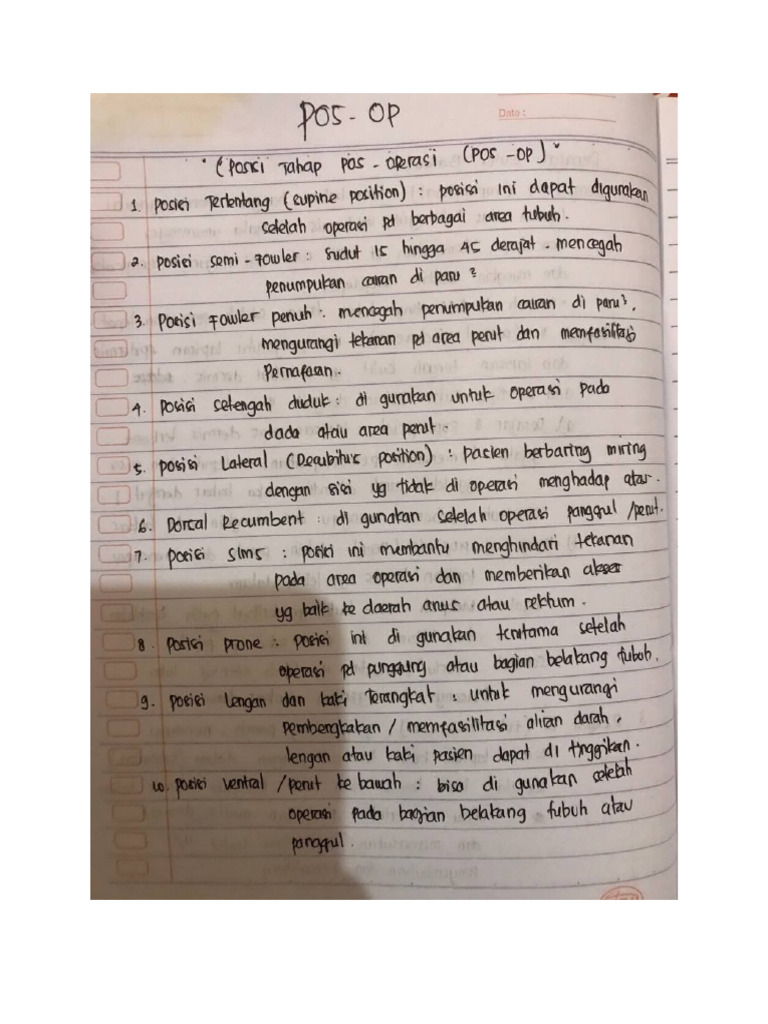 POS - OP
Dato :
" (Posisi Tahap POS - Operasi (POS - OP) "
1. Posisi Terlentang (supine position) : posisi ini dapat digunakan
setelah operasi pd berbagai area tubuh.
2. Posisi semi - Fowler : sudut 15 hingga 45 derajat - mencegah
penumpukan cairan di paru²
3. Posisi Fowler penuh : mencegah penumpukan cairan di paru²,
mengurangi tekanan pd area perut dan memfasilitasi
Pernafasan.
4. Posisi setengah duduk : di gunakan untuk operasi pada
dada atau area perut.
5. Posisi Lateral (Decubitus position) : pasien berbaring miring
dengan sisi yg tidak di operasi menghadap atas.
6. Dorsal Recumbent : di gunakan setelah operasi panggul / perut.
7. Posisi SIMS : posisi ini membantu menghindari tekanan
pada area operasi dan memberikan akses
yg baik ke daerah anus atau rektum.
8. Posisi prone : posisi ini di gunakan terutama setelah
operasi pd punggung atau bagian belakang tubuh.
9. Posisi Lengan dan kaki Terangkat : untuk mengurangi
Pembengkakan / memfasilitasi aliran darah,
lengan atau kaki pasien dapat di tinggikan.
10. Posisi ventral / perut ke bawah : bisa di gunakan setelah
operasi pada bagian belakang tubuh atau
panggul.